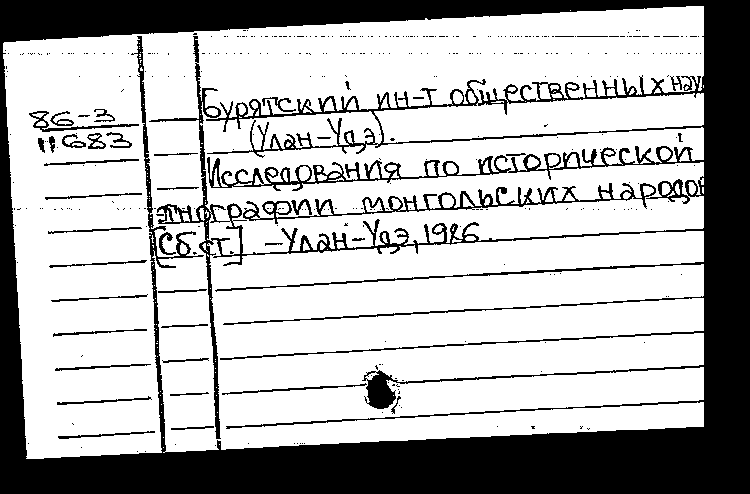 86-3
11683
Бурятский ин-т общественных наук
(Улан-Удэ).
Исследования по исторической
этнографии монгольских народов
[Сб.ст.] -Улан-Удэ, 1986.